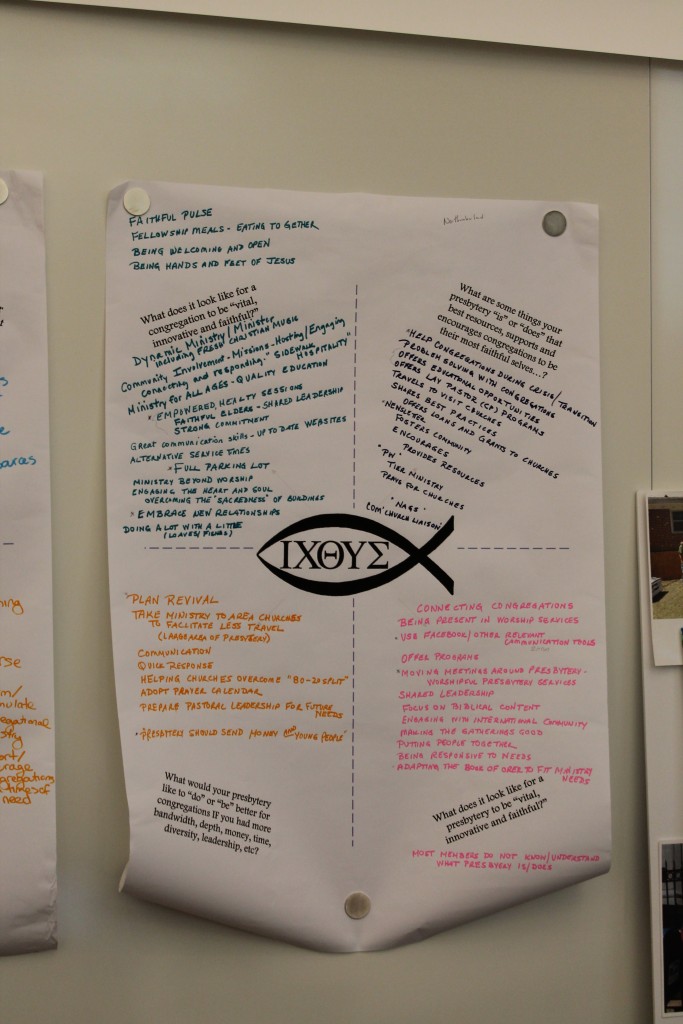 FAITHFUL PULSE
FELLOWSHIP MEALS - EATING TO GETHER
BEING WELCOMING AND OPEN
BEING HANDS AND FEET OF JESUS
What does it look like for a
congregation to be "vital,
innovative and faithful?"
Dynamic Ministry/Minister
including FRESH CHRISTIAN MUSIC
Community Involvement - Missions - Hosting/Engaging
connecting and responding - "SIDEWALK
HOSPITALITY"
Ministry for ALL AGES - QUALITY EDUCATION
* EMPOWERED, HEALTY SESSIONS
FAITHFUL ELDERS - SHARED LEADERSHIP
STRONG COMMITMENT
Great communication skills - UP TO DATE WEBSITES
ALTERNATIVE SERVICE TIMES
* FULL PARKING LOT
MINISTRY BEYOND WORSHIP
ENGAGING THE HEART AND SOUL
OVERCOMING THE "SACREDNESS" OF BUILDINGS
* EMBRACE NEW RELATIONSHIPS
DOING A LOT WITH A LITTLE
(LOAVES/FISHES)
What are some things your
presbytery "is" or "does" that
best resources, supports and
encourages congregations to be
their most faithful selves...?
"HELP CONGREGATIONS DURING CRISIS/TRANSITION
PROBLEM SOLVING WITH CONGREGATIONS
OFFERS EDUCATIONAL OPPORTUNITIES
OFFERS LAY PASTOR (CP) PROGRAMS
TRAVELS TO VISIT CHURCHES
SHARES BEST PRACTICES
OFFERS LOANS AND GRANTS TO CHURCHES
-NEWSLETTER
FOSTERS COMMUNITY
ENCOURAGES
PROVIDES RESOURCES
"PW"
TIER MINISTRY
PRAYS FOR CHURCHES
"NAGS"
COM "CHURCH LIAISON"
ΙΧΘΥΣ
PLAN REVIVAL
TAKE MINISTRY TO AREA CHURCHES
TO FACILITATE LESS TRAVEL
(LARGE AREA OF PRESBYTERY)
COMMUNICATION
QUICK RESPONSE
HELPING CHURCHES OVERCOME "80-20 SPLIT"
ADOPT PRAYER CALENDAR
PREPARE PASTORAL LEADERSHIP FOR FUTURE
NEEDS
"PRESBYTERS SHOULD SEND MONEY AND YOUNG PEOPLE"
What would your presbytery
like to "do" or "be" better for
congregations IF you had more
bandwidth, depth, money, time,
diversity, leadership, etc?
CONNECTING CONGREGATIONS
BEING PRESENT IN WORSHIP SERVICES
USE FACEBOOK/OTHER RELEVANT
COMMUNICATION TOOLS
OFFER PROGRAMS
"MOVING MEETINGS AROUND PRESBYTERY -
WORSHIPFUL PRESBYTERY SERVICES
SHARED LEADERSHIP
FOCUS ON BIBLICAL CONTENT
ENGAGING WITH INTERNATIONAL COMMUNITY
MAKING THE GATHERINGS GOOD
PUTTING PEOPLE TOGETHER
BEING RESPONSIVE TO NEEDS
ADAPTING THE BOOK OF ORDER TO FIT MINISTRY
NEEDS
What does it look like for a
presbytery to be "vital,
innovative and faithful?"
MOST MEMBERS DO NOT KNOW/UNDERSTAND
WHAT PRESBYTERY IS/DOES